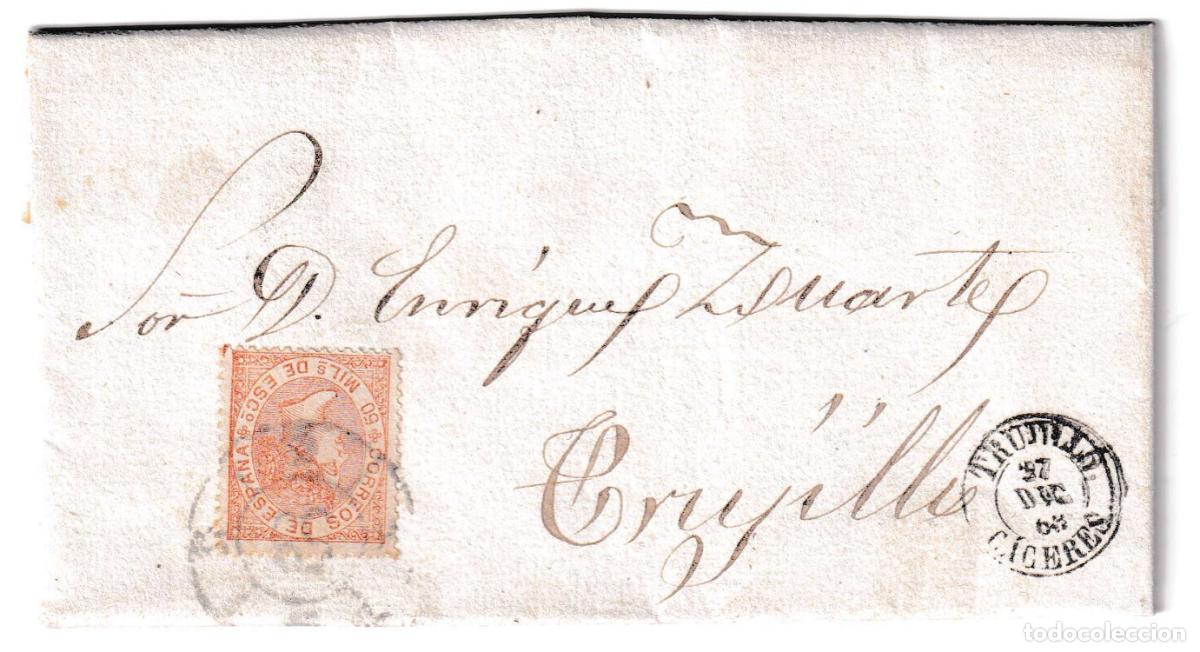 Sor D. Enrique Zuarte
Trujillo
CORREOS DE ESPAÑA
50 MILS DE ESCO
TRUJILLO.
27
DIC
68
CACERES
todocoleccion